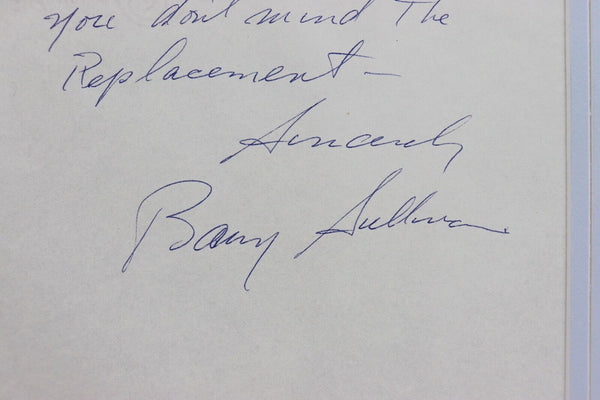 you don't mind The
Replacement —
Sincerely
Barry Sullivan